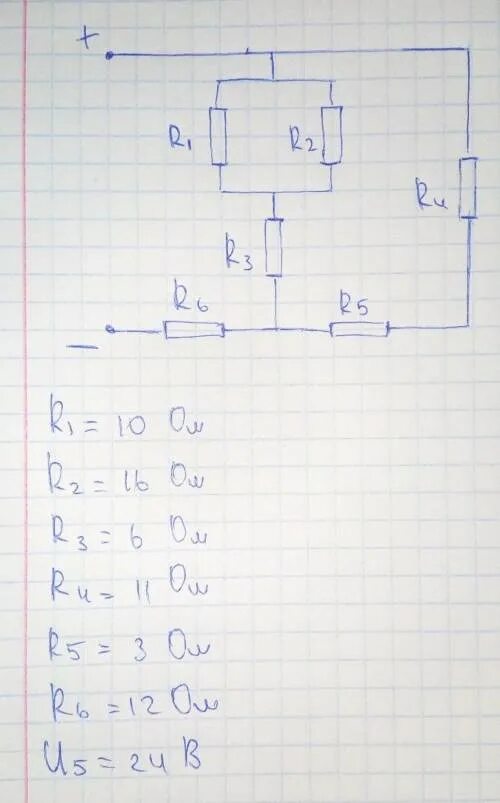 +
R1 R2
R4
R3
R6 R5
−
R1 = 10 Ом
R2 = 16 Ом
R3 = 6 Ом
R4 = 11 Ом
R5 = 3 Ом
R6 = 12 Ом
U5 = 24 В